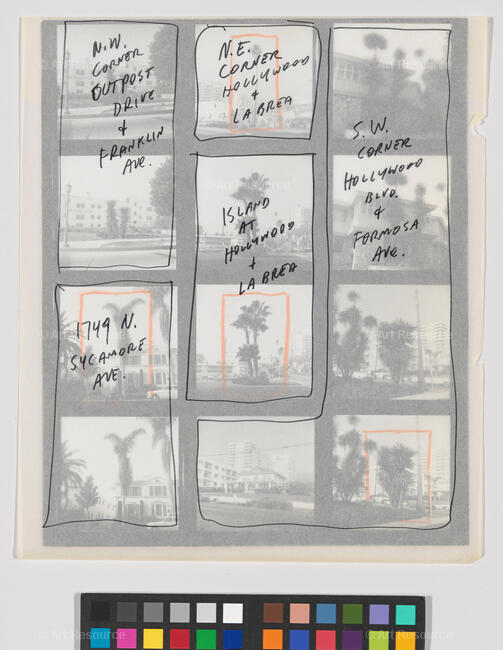 N.W.
CORNER
OUTPOST
DRIVE
&
FRANKLIN
AVE.
N.E.
CORNER
HOLLYWOOD
&
LA BREA
S.W.
CORNER
HOLLYWOOD
BLVD.
&
FORMOSA
AVE.
ISLAND
AT
HOLLYWOOD
&
LA BREA
1749 N.
SYCAMORE
AVE.
© Art Resource
© Art Resource